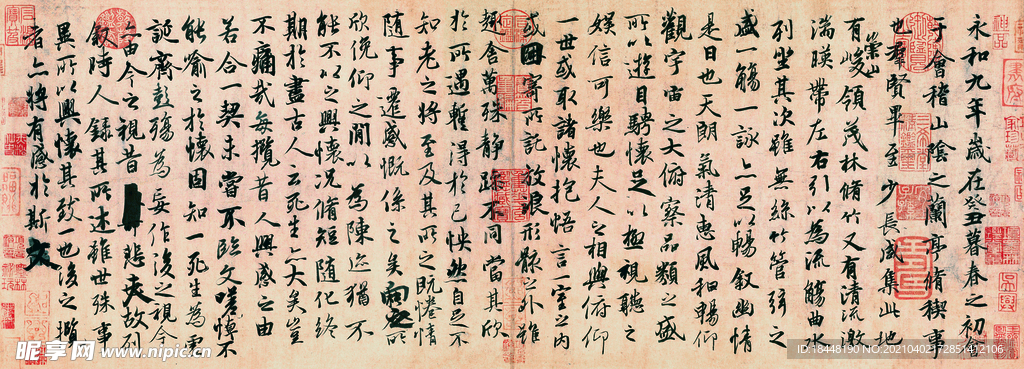 永和九年歲在癸丑暮春之初會
于會稽山陰之蘭亭脩稧事
也羣賢畢至少長咸集此地
有崇山峻領茂林脩竹又有清流激
湍暎帶左右引以為流觴曲水
列坐其次雖無絲竹管弦之
盛一觴一詠亦足以暢敘幽情
是日也天朗氣清惠風和暢仰
觀宇宙之大俯察品類之盛
所以遊目騁懷足以極視聽之
娛信可樂也夫人之相與俯仰
一世或取諸懷抱悟言一室之內
或因寄所託放浪形骸之外雖
趣舍萬殊靜躁不同當其欣
於所遇蹔得於己怏然自足不
知老之將至及其所之既惓情
隨事遷感慨係之矣向之所
欣俛仰之間以為陳迹猶不
能不以之興懷況脩短隨化終
期於盡古人云死生亦大矣豈
不痛哉每攬昔人興感之由
若合一契未嘗不臨文嗟悼不
能喻之於懷固知一死生為虛
誕齊彭殤為妄作後之視今
亦由今之視昔悲夫故列
敘時人錄其所述雖世殊事
異所以興懷其致一也後之攬
者亦將有感於斯文
昵享网 www.nipic.cn
ID:18448190 NO:20210402172851412106